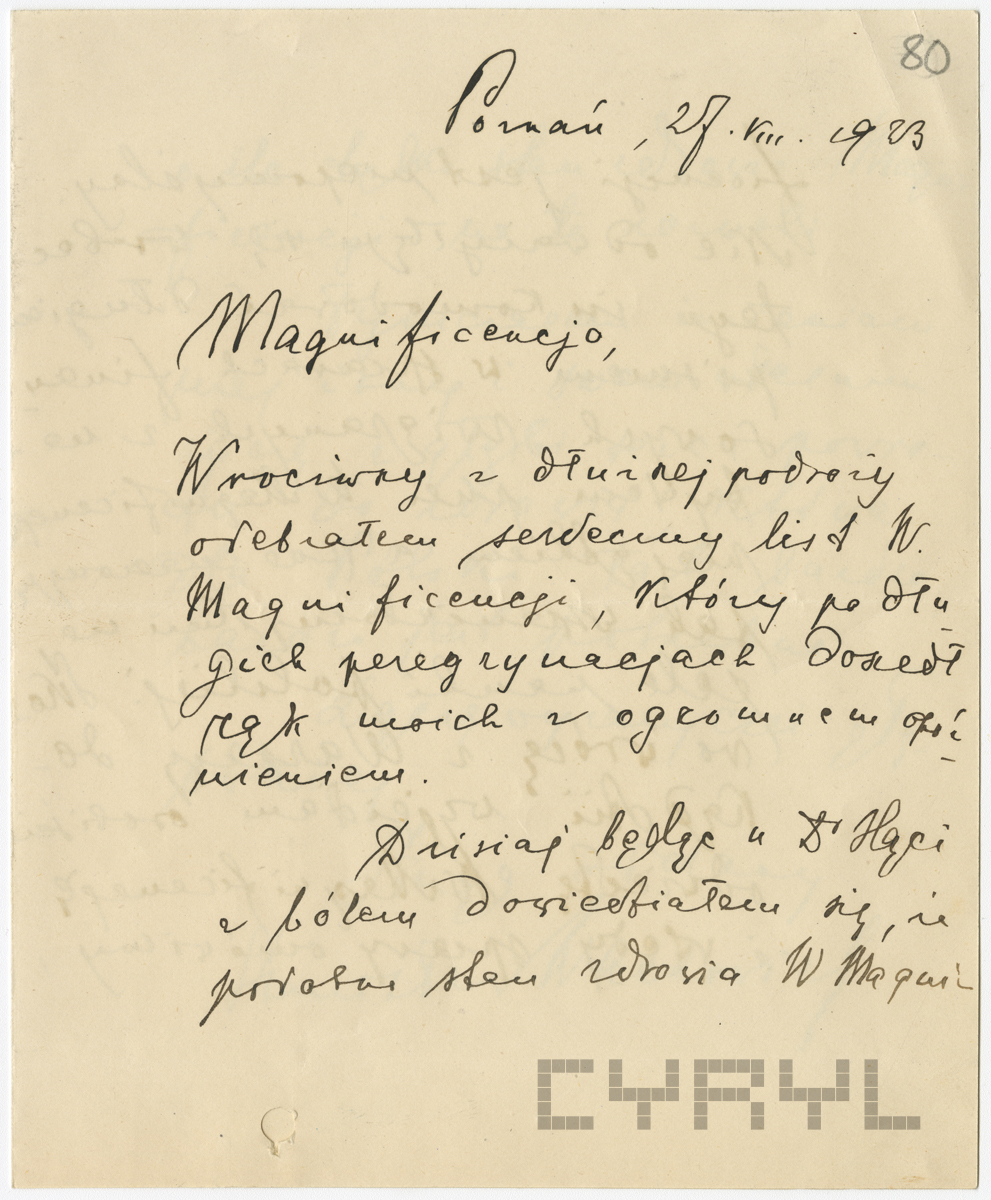 80
Poznań, 27. VIII. 1923
Magnificencjo,
Wrociwszy z dłuższej podroży
odebrałem serdeczny list W.
Magnificencji, który po dłu-
gich peregrynacjach doszedł
rąk moich z ogromnem opóź-
nieniem.
Dzisiaj będąc u Dr Hąci
z bólem dowiedziałem się, że
podobno stan zdrowia W Magni-
CYRYL